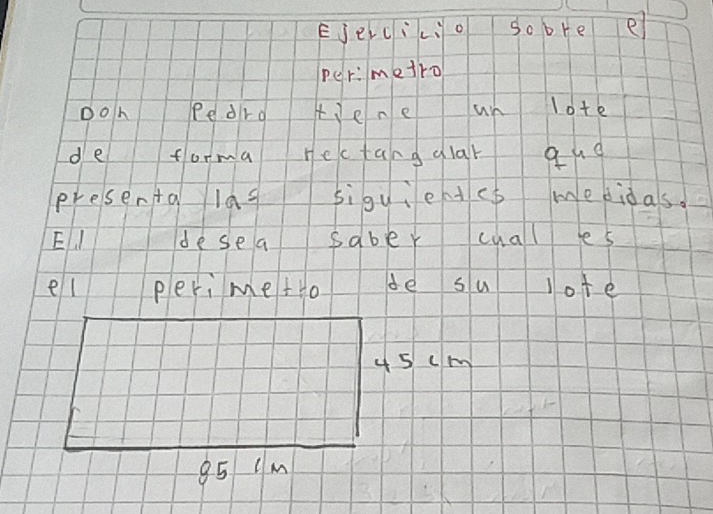 Ejercicio sobre el
perimetro
Don Pedro tiene un lote
de forma rectangular que
presenta las siguientes medidas.
El desea saber cual es
el perimetro de su lote
45 cm
95 cm